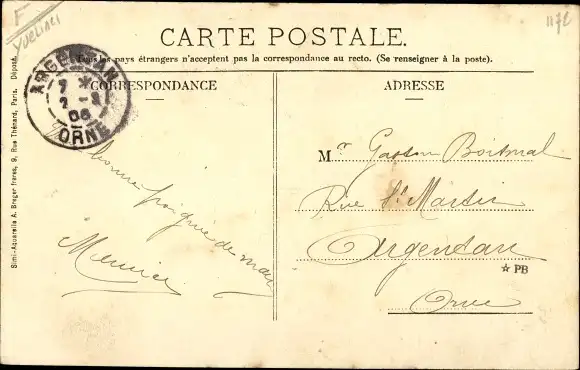 F
Yvelines
1172
CARTE POSTALE.
Tous les pays étrangers n'acceptent pas la correspondance au recto. (Se renseigner à la poste).
CORRESPONDANCE
ADRESSE
ARGENTAN
7 *
2 - 3
06
ORNE
Simi-Aquarelle A. Breger frères, 9, Rue Thénard, Paris. Déposé.
bonne poignée de main
Meunier
Mr Gaston Boitnal
Rue St Martin
Argentan
☆ PB
Orne